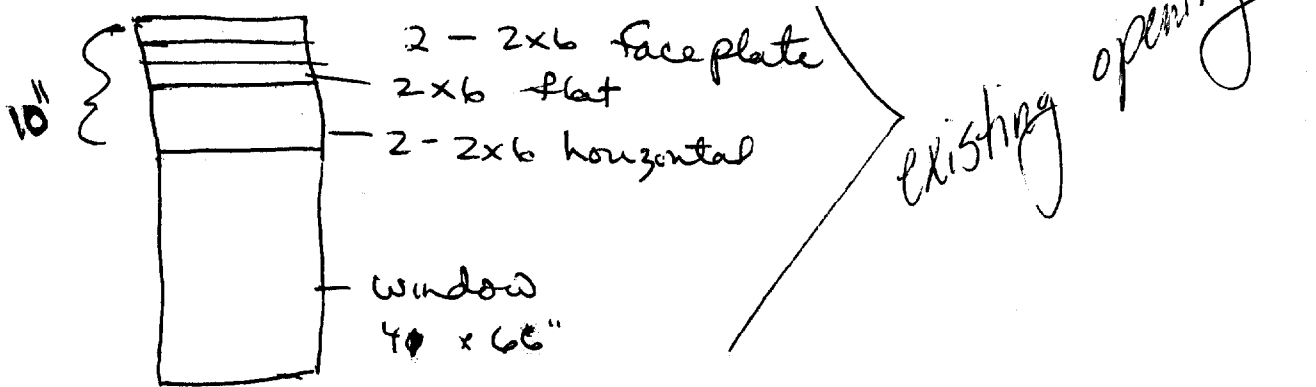 2 - 2x6 faceplate
2x6 flat
10"
2 - 2x6 horizontal
window
x 66"
existing opening